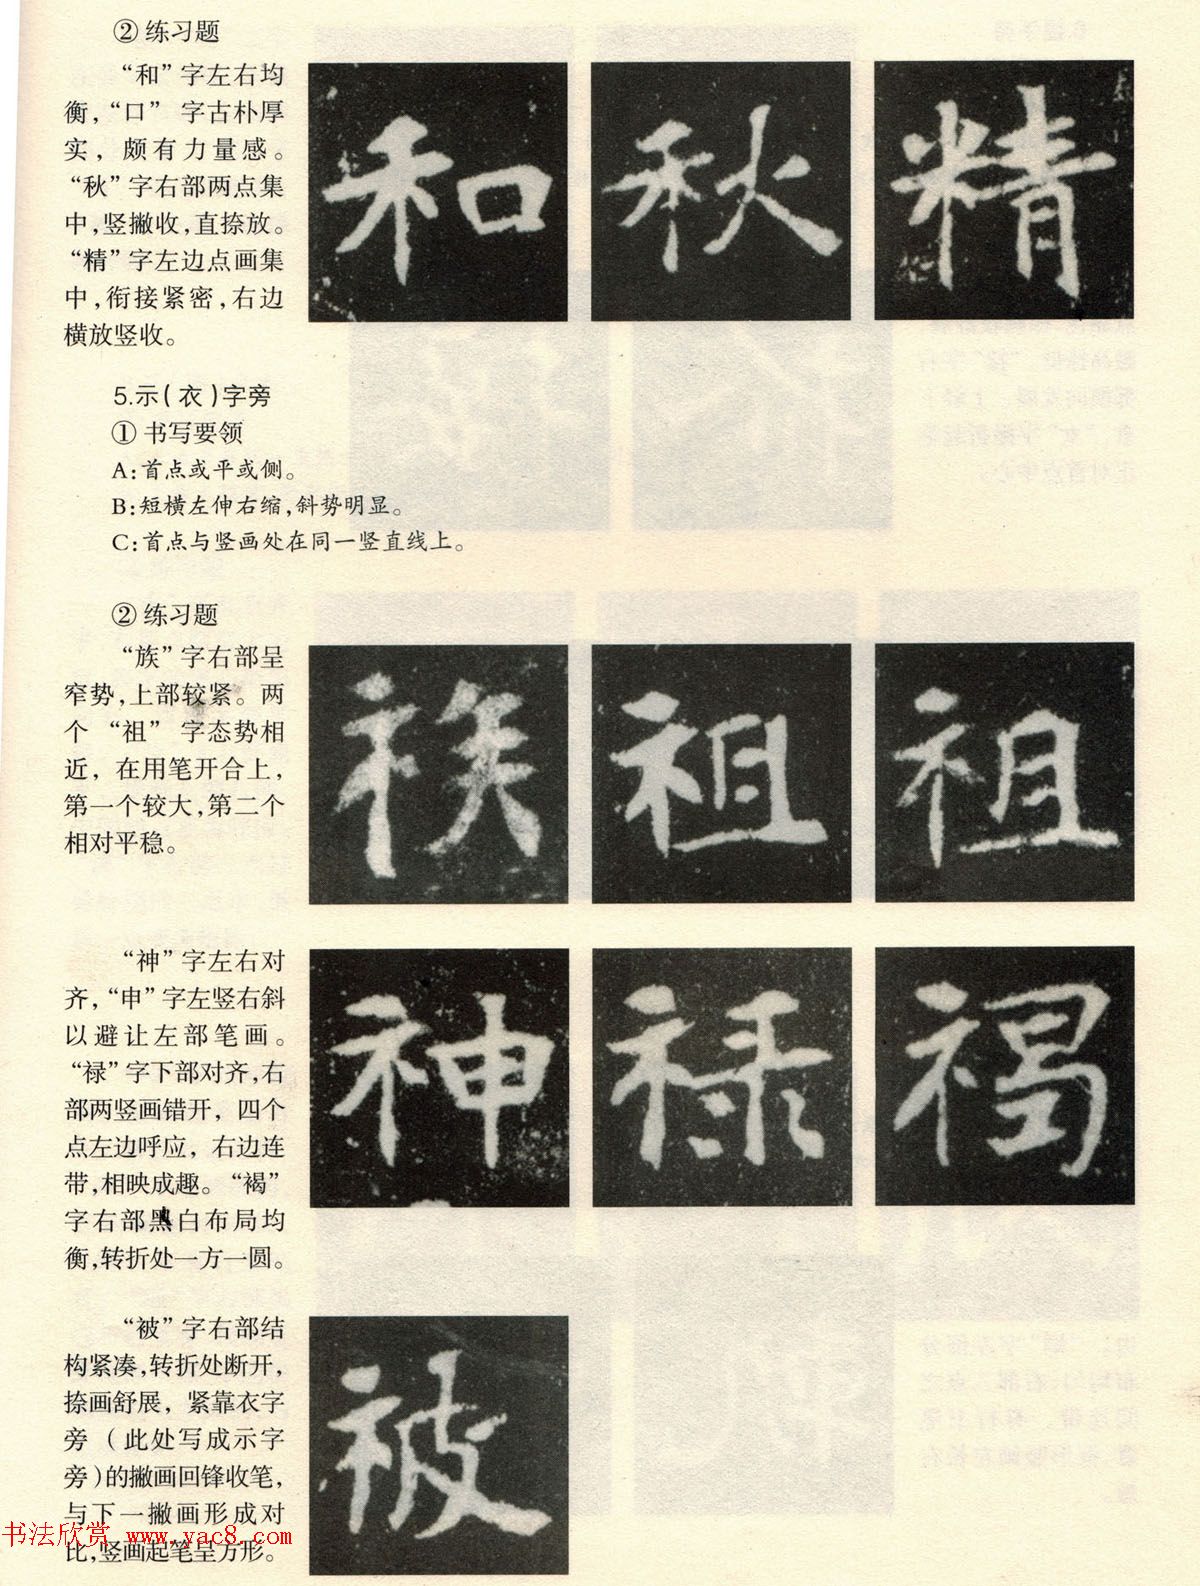 ② 练习题
“和”字左右均
衡，“口” 字古朴厚
实，颇有力量感。
“秋”字右部两点集
中，竖撇收，直捺放。
“精”字左边点画集
中，衔接紧密，右边
横放竖收。
和秋精
5.示（衣）字旁
① 书写要领
A：首点或平或侧。
B：短横左伸右缩，斜势明显。
C：首点与竖画处在同一竖直线上。
② 练习题
“族”字右部呈
窄势，上部较紧。两
个“祖”字态势相
近，在用笔开合上，
第一个较大，第二个
相对平稳。
祖祖
“神”字左右对
齐，“申”字左竖右斜
以避让左部笔画。
“禄”字下部对齐，右
部两竖画错开，四个
点左边呼应，右边连
带，相映成趣。“褐”
字右部黑白布局均
衡，转折处一方一圆。
神禄褐
“被”字右部结
构紧凑，转折处断开，
捺画舒展，紧靠衣字
旁（此处写成示字
旁）的撇画回锋收笔，
与下一撇画形成对
比，竖画起笔呈方形。
被
书法欣赏 www.yac8.com